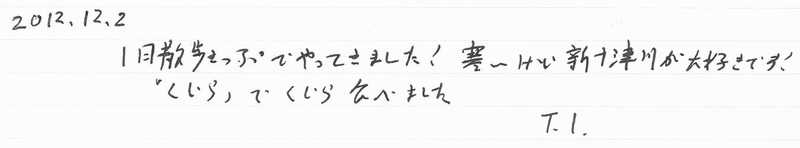 2012.12.2
1日散歩きっぷでやってきました! 寒〜けど新十津川が大好きです!
「くじら」でくじら食べました
T.I.